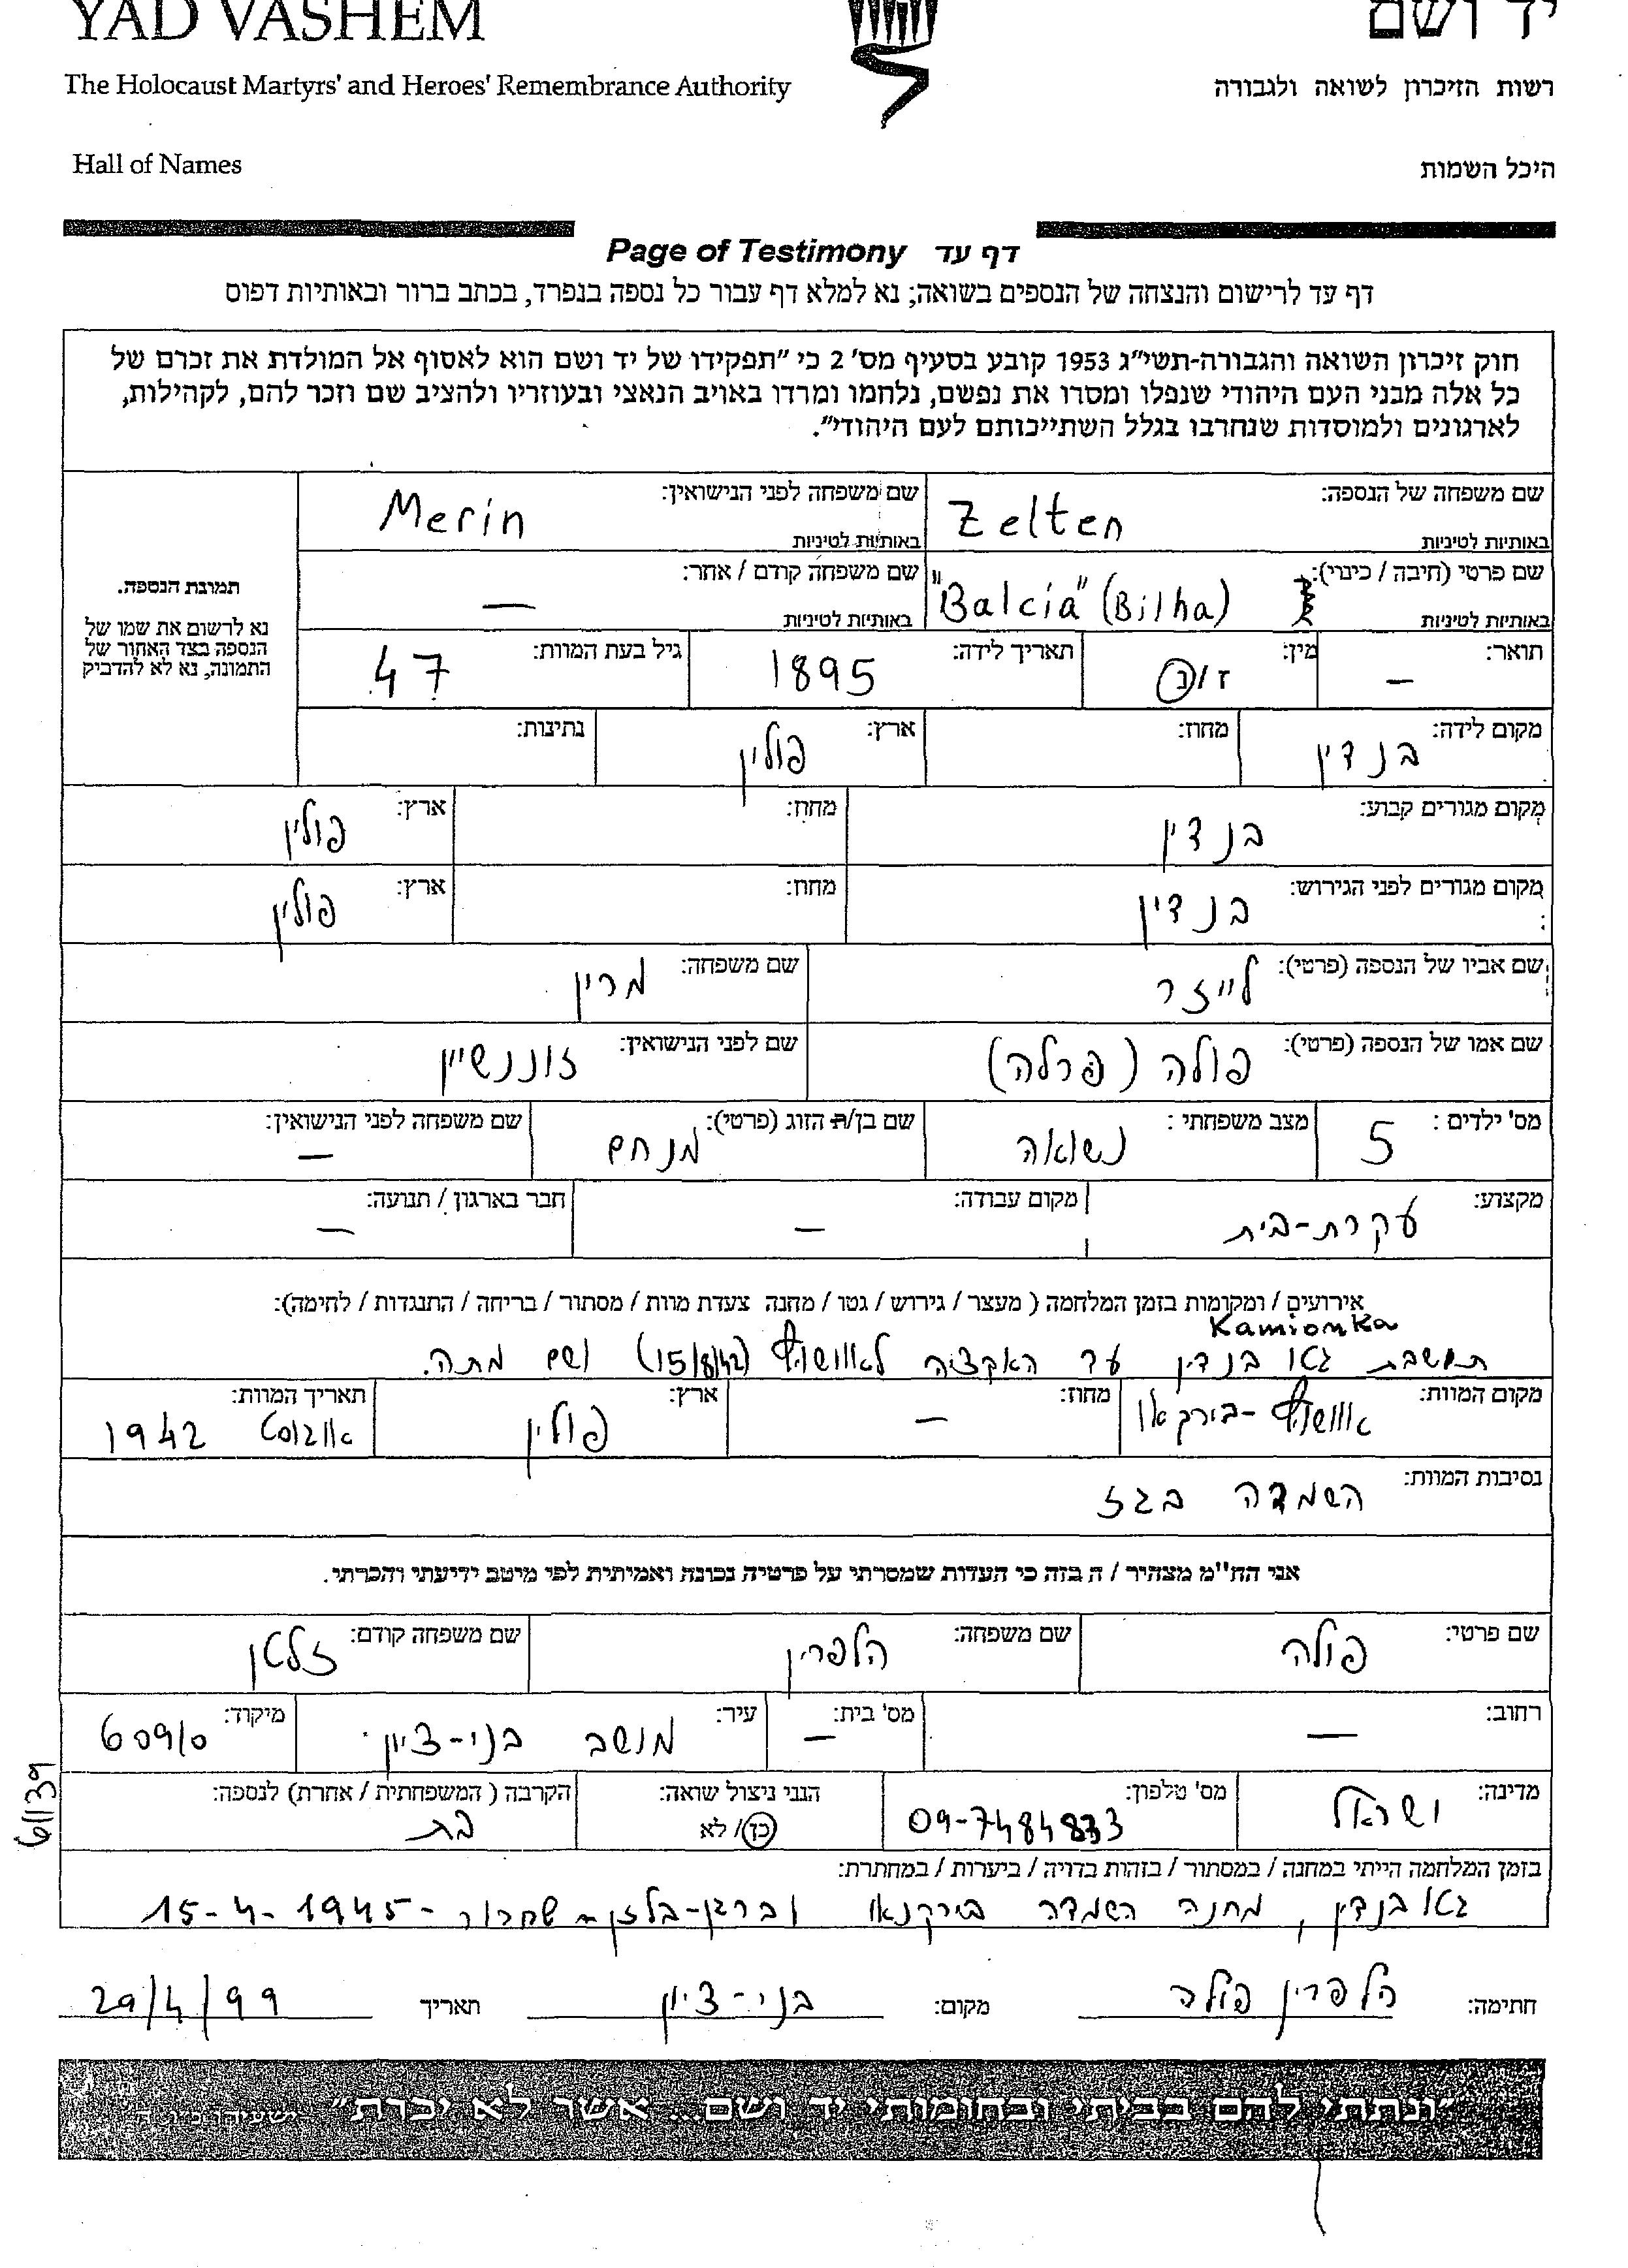 YAD VASHEM
יד ושם
The Holocaust Martyrs' and Heroes' Remembrance Authority
רשות הזיכרון לשואה ולגבורה
Hall of Names
היכל השמות
Page of Testimony דף עד
דף עד לרישום והנצחה של הנספים בשואה; נא למלא דף עבור כל נספה בנפרד, בכתב ברור ובאותיות דפוס
חוק זיכרון השואה והגבורה-תשי"ג 1953 קובע בסעיף מס' 2 כי "תפקידו של יד ושם הוא לאסוף אל המולדת את זכרם של
כל אלה מבני העם היהודי שנפלו ומסרו את נפשם, נלחמו ומרדו באויב הנאצי ובעוזריו ולהציב שם וזכר להם, לקהילות,
לארגונים ולמוסדות שנחרבו בגלל השתייכותם לעם היהודי".
שם משפחה של הנספה: Zelten שם משפחה לפני הנישואין: Merin
באותיות לטיניות באותיות לטיניות
שם פרטי (חיבה / כינוי): "Balcia" (Bilha) שם משפחה קודם / אחר: –
באותיות לטיניות באותיות לטיניות
תמונת הנספה.
נא לרשום את שמו של
הנספה בצד האחור של
התמונה, נא לא להדביק
תואר: – מין: ז/נ תאריך לידה: 1895 גיל בעת המוות: 47
מקום לידה: בנדין מחוז: ארץ: פולין נתינות:
מקום מגורים קבוע: בנדין מחוז: ארץ: פולין
מקום מגורים לפני הגירוש: בנדין מחוז: ארץ: פולין
שם אביו של הנספה (פרטי): לייזר שם משפחה: מרין
שם אמו של הנספה (פרטי): פולה (פרלה) שם לפני הנישואין: זוננשיין
מס' ילדים: 5 מצב משפחתי: נשואה שם בן/ת הזוג (פרטי): מנחם שם משפחה לפני הנישואין: –
מקצוע: עקרת-בית מקום עבודה: – חבר בארגון / תנועה: –
אירועים / ומקומות בזמן המלחמה ( מעצר / גירוש / גטו / מחנה צעדת מוות / מסתור / בריחה / התנגדות / לחימה):
Kamionka
תושבת גטו בנדין עד האקציה לאושויץ (15/8/42) ושם מתה.
מקום המוות: אושויץ-בירקאו מחוז: – ארץ: פולין תאריך המוות: אוגוסט 1942
נסיבות המוות: השמדה בגז
אני הח"מ מצהיר / ה בזה כי העדות שמסרתי על פרטיה נכונה ואמיתית לפי מיטב ידיעתי והכרתי.
שם פרטי: פולה שם משפחה: הלפרין שם משפחה קודם: זלטן
רחוב: – מס' בית: – עיר: מושב בני-ציון מיקוד: 60910
מדינה: ישראל מס' טלפון: 09-7484833 הנני ניצול שואה: כן / לא הקרבה ( המשפחתית / אחרת) לנספה: בת
6/139
בזמן המלחמה הייתי במחנה / במסתור / בזהות בדויה / ביערות / במחתרת:
גטו בנדין, מחנה השמדה בירקנאו וברגן-בלזן - שחרור - 15-4-1945
חתימה: הלפרין פולה מקום: בני-ציון תאריך 29/4/99
"ונתתי להם בביתי ובחומותי יד ושם... אשר לא יכרת" ישעיהו נו, ה